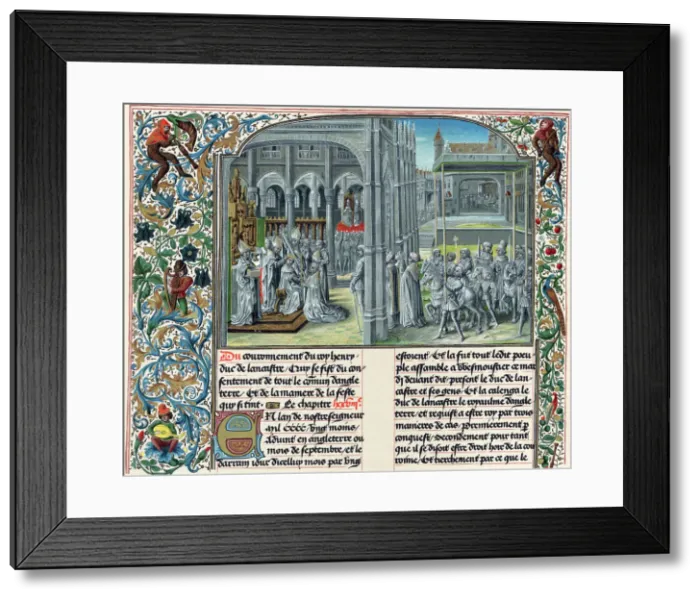 Du couronnement du roy henry
duc de lancastre Qui se fist du con
sentement de tout le comun dangle
terre. Et de la maniere de la feste
qui se tint. Le chapitre
El lan de nostre seigneur
mil cccc. Ung moins
Advint en engleterre ou
mois de septembre, et le
darrain iour dicelluy mois par ung
estoient. Et la fut tout ledit peu
ple assamble a Wesmoustier ce mar
di devant dit, present le duc de lan
castre et ses gens. Et la calenga le
duc de lancastre le royaulme dangle
terre, et requist a estre roy par trois
manieres de cas. Premierement p
conquest, Secondement pour tant
que il se disoit estre droit hoir de la cou
ronne, Et tierchement par ce que le